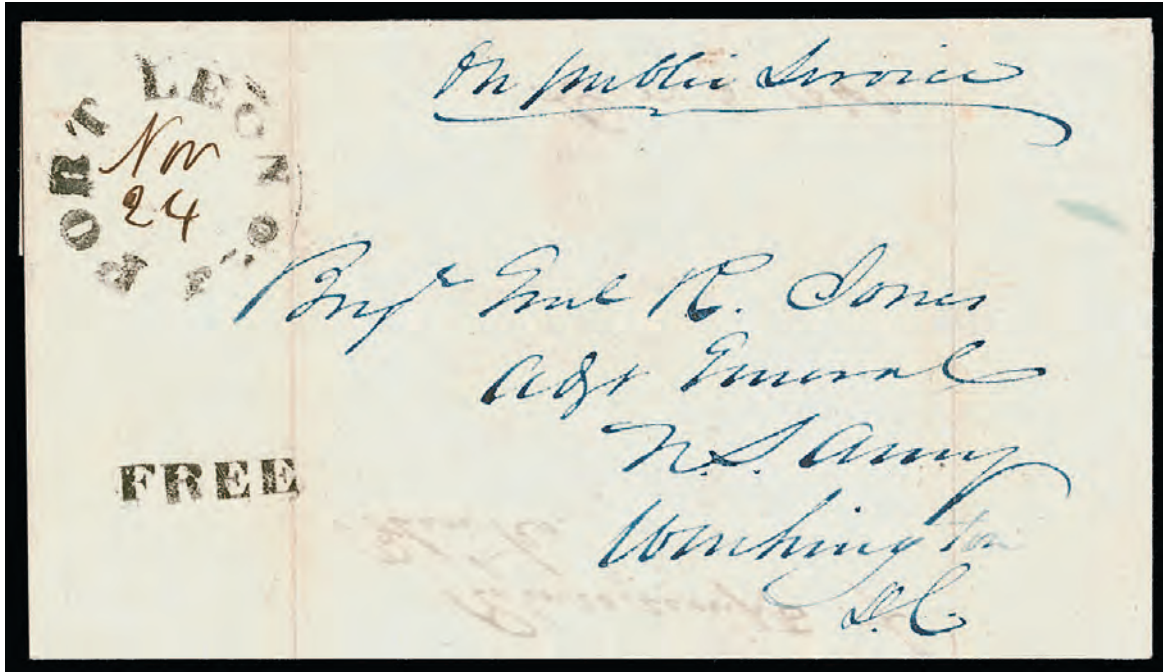 PORT LEON
Nov
24
On public Service
Brigr Genl R. Jones
Adjt General
U.S. Army
Washington
D.C.
FREE